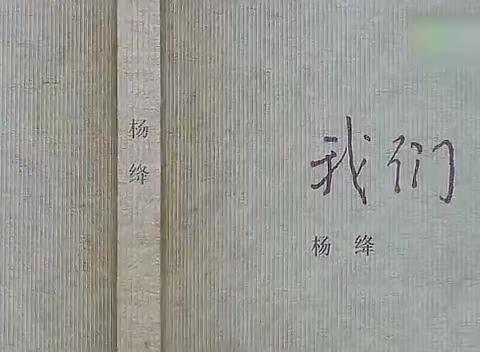 杨绛
我们
杨绛